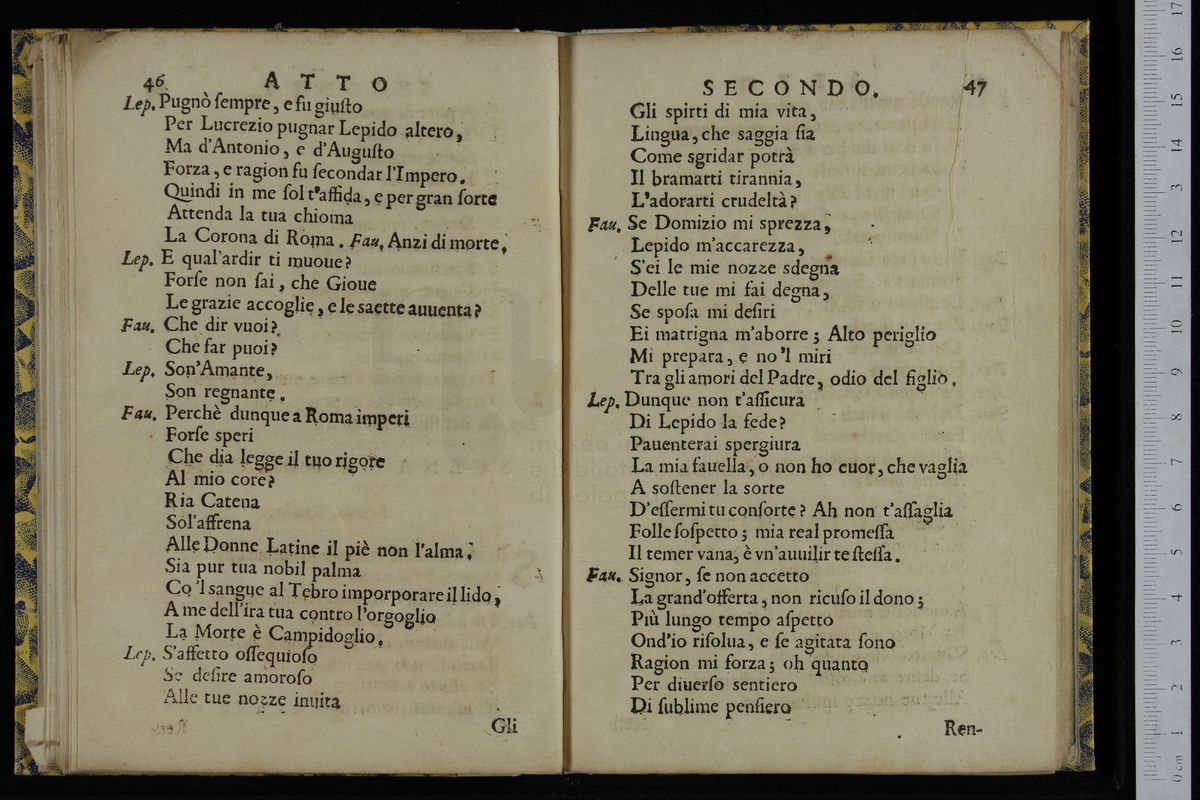 46 ATTO
Lep. Pugnò ſempre, e fu giuſto
Per Lucrezio pugnar Lepido altero,
Ma d'Antonio, e d'Auguſto
Forza, e ragion fu ſecondar l'Impero.
Quindi in me ſol t'affida, e per gran ſorte
Attenda la tua chioma
La Corona di Roma. Fau. Anzi di morte.
Lep. E qual'ardir ti muoue?
Forſe non ſai, che Gioue
Le grazie accoglie, e le ſaette auuenta?
Fau. Che dir vuoi?
Che far puoi?
Lep. Son'Amante,
Son regnante.
Fau. Perchè dunque a Roma imperi
Forſe speri
Che dia legge il tuo rigore
Al mio core?
Ria Catena
Sol'affrena
Alle Donne Latine il piè non l'alma.
Sia pur tua nobil palma
Co 'l sangue al Tebro imporporare il lido,
A me dell'ira tua contro l'orgoglio
La Morte è Campidoglio.
Lep. S'affetto oſſequioſo
Se deſire amoroſo
Alle tue nozze inuita
Gli
SECONDO. 47
Gli spirti di mia vita,
Lingua, che saggia ſia
Come sgridar potrà
Il bramarti tirannia,
L'adorarti crudeltà?
Fau. Se Domizio mi sprezza,
Lepido m'accarezza,
S'ei le mie nozze sdegna
Delle tue mi fai degna,
Se spoſa mi deſiri
Ei matrigna m'aborre; Alto periglio
Mi prepara, e no 'l miri
Tra gli amori del Padre, odio del figlio.
Lep. Dunque non t'aſſicura
Di Lepido la fede?
Pauenterai spergiura
La mia fauella, o non ho cuor, che vaglia
A soſtener la sorte
D'eſſermi tu conſorte? Ah non t'aſſaglia
Folle ſoſpetto; mia real promeſſa
Il temer vana, è vn'auuilir te ſteſſa.
Fau. Signor, ſe non accetto
La grand'offerta, non ricuſo il dono;
Più lungo tempo aſpetto
Ond'io riſolua, e ſe agitata ſono
Ragion mi forza; oh quanto
Per diuerſo sentiero
Di ſublime penſiero
Ren-